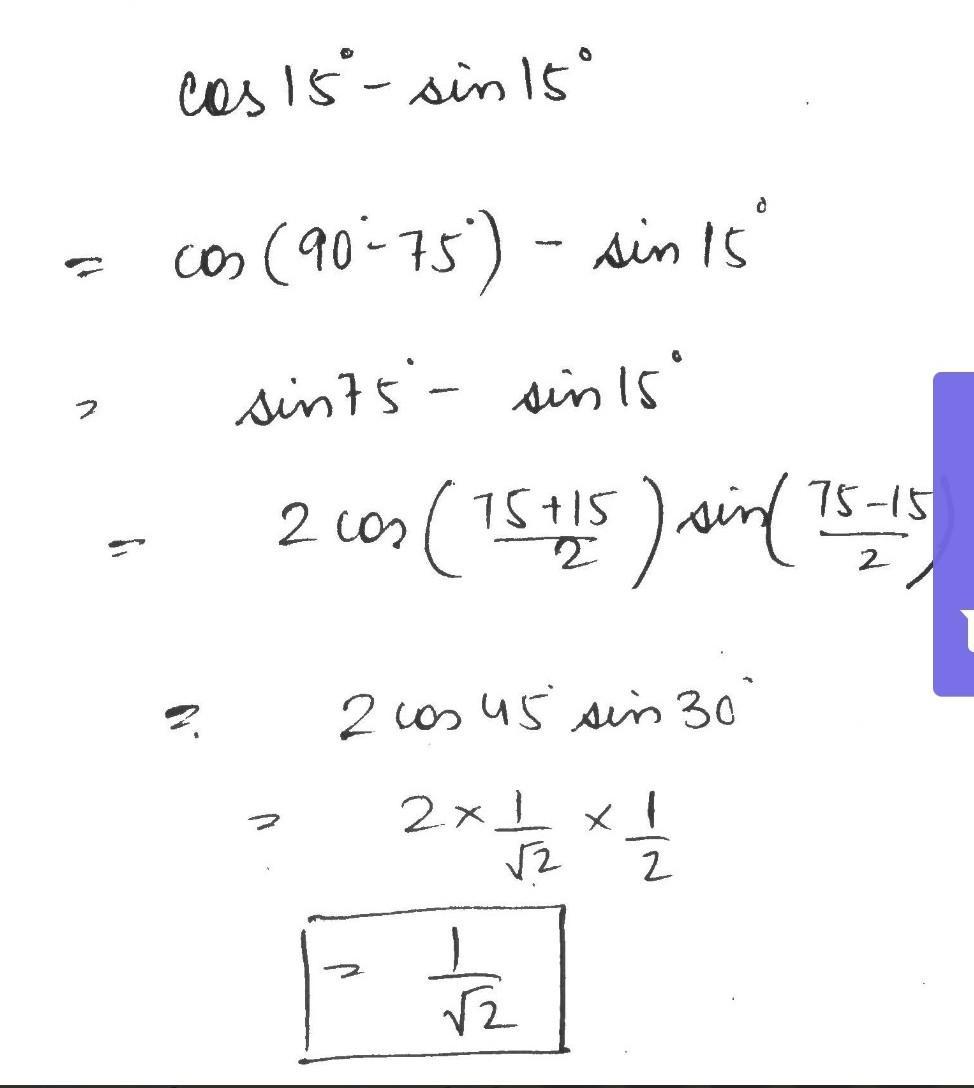 cos 15° - sin 15°
= cos (90° - 75°) - sin 15°
= sin 75° - sin 15°
= 2 cos ( (75+15)/2 ) sin ( (75-15)/2 )
= 2 cos 45° sin 30°
= 2 × 1/√2 × 1/2
= 1/√2